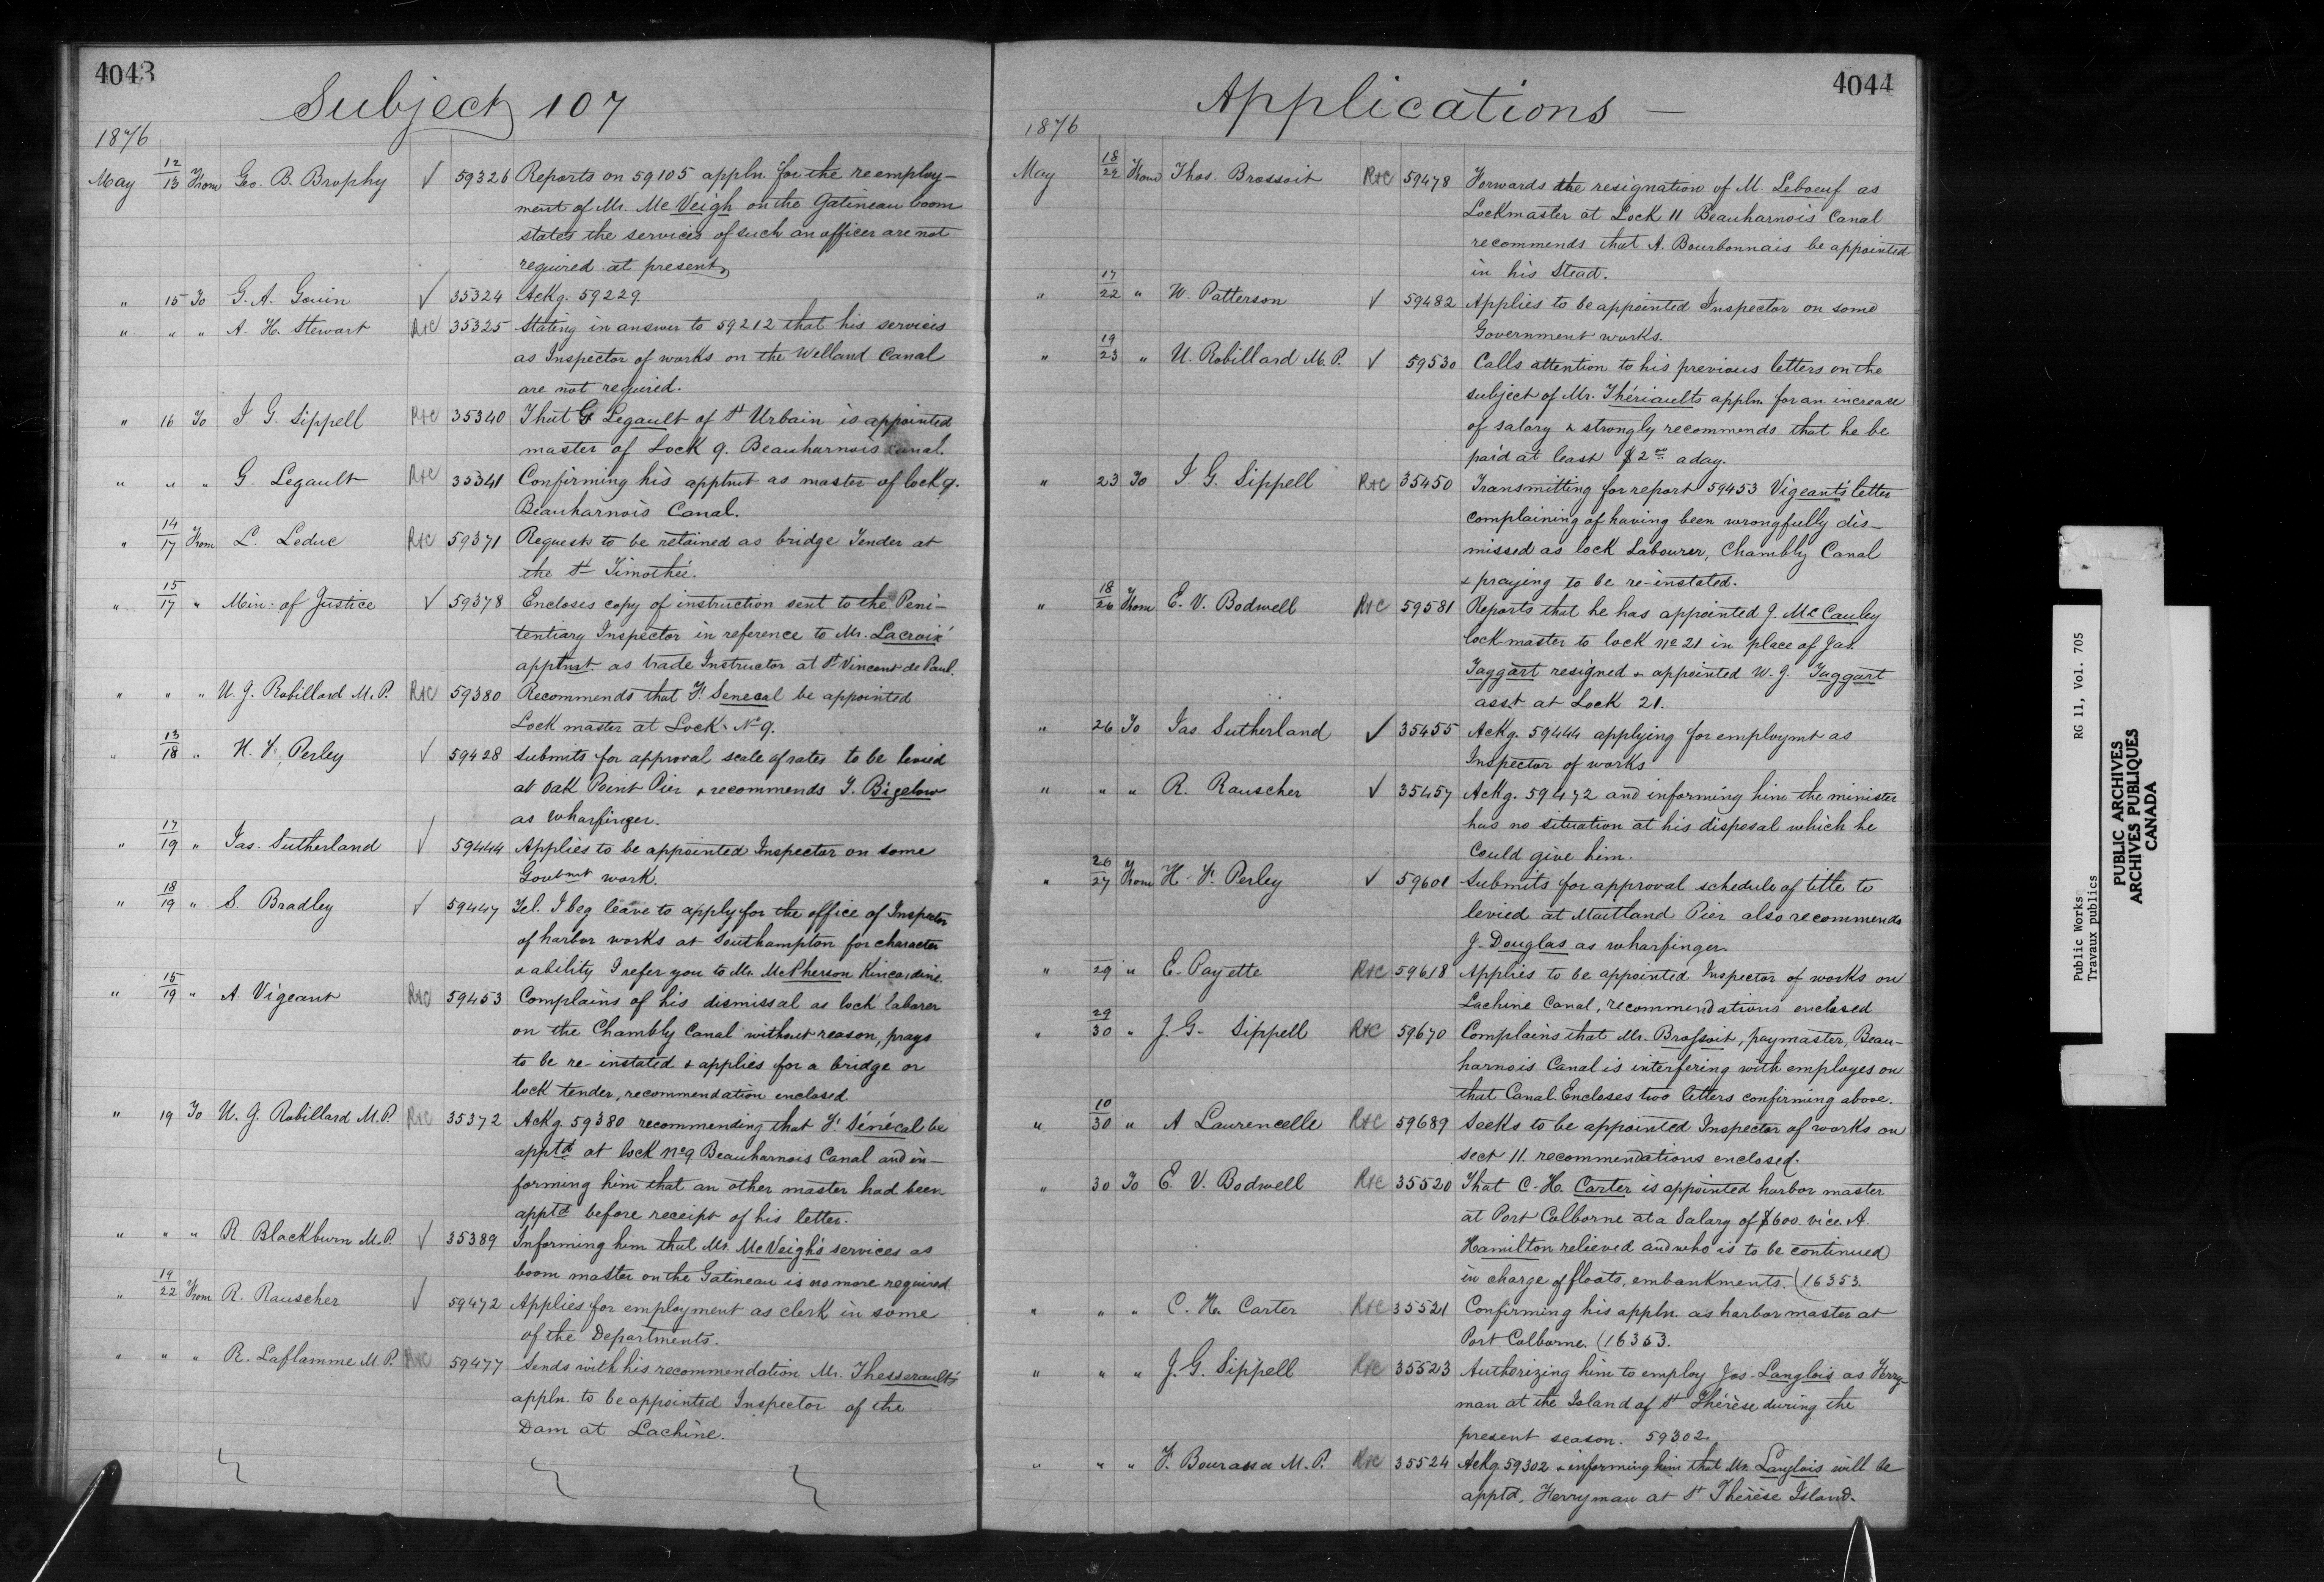 4043
Subject 107
1876
May 12/13 From Geo. B. Brophy √ 59326 Reports on 59105 appln. for the reemploy-
ment of Mr. McVeigh on the Gatineau boom
states the services of such an officer are not
required at present
" 15 To G. A. Gouin √ 35324 Ackg. 59229
" " " A. H. Stewart R+C 35325 Stating in answer to 59212 that his services
as Inspector of works on the Welland Canal
are not required.
" 16 To J G. Sippell R+C 35340 That G Legault of St Urbain is appointed
master of Lock 9. Beauharnois Canal.
" " " G. Legault R+C 35341 Confirming his apptmt as master of lock 9.
Beauharnois Canal.
" 14/17 From L. Leduc R+C 59371 Requests to be retained as bridge Tender at
the St Timothée.
" 15/17 " Min. of Justice √ 59378 Encloses copy of instruction sent to the Peni-
tentiary Inspector in reference to Mr. Lacroix'
apptmt. as trade Instructor at St Vincent de Paul.
" " " U. J. Robillard M.P. R+C 59380 Recommends that F. Senecal be appointed
Lock master at Lock No 9.
" 13/18 " H. F. Perley √ 59428 Submits for approval scale of rates to be levied
at Oak Point Pier & recommends T. Bigelow
as Wharfinger.
" 17/19 " Jas. Sutherland √ 59444 Applies to be appointed Inspector on some
Govtmnt work.
" 18/19 " S. Bradley √ 59447 Tel. I beg leave to apply for the office of Inspector
of harbor works at Southampton for character
& ability I refer you to Mr. McPherson Kincardine.
" 15/19 " A. Vigeant R+C 59453 Complains of his dismissal as lock laborer
on the Chambly Canal without reason, prays
to be re-instated & applies for a bridge or
lock tender, recommendation enclosed
" 19 To U. J. Robillard M.P. R+C 35372 Ackg. 59380 recommending that F. Sénécal be
apptd at lock No 9 Beauharnois Canal and in-
forming him that an other master had been
apptd before receipt of his letter.
" " " R. Blackburn M.P. √ 35389 Informing him that Mr. McVeigh's services as
boom master on the Gatineau is no more required
" 19/22 From R. Rauscher √ 59472 Applies for employment as clerk in some
of the Departments.
" " " R. Laflamme M.P. R+C 59477 Sends with his recommendation Mr. Thesserault's
appln. to be appointed Inspector of the
Dam at Lachine.
4044
Applications —
1876
May 18/22 From Thos. Brossoit R+C 59478 Forwards the resignation of M. Leboeuf as
Lockmaster at Lock 11 Beauharnois Canal
recommends that A. Bourbonnais be appointed
in his Stead.
" 17/22 " W. Patterson √ 59482 Applies to be appointed Inspector on some
Government works.
" 19/23 " U. Robillard M.P. √ 59530 Calls attention to his previous letters on the
subject of Mr. Thériault's appln. for an increase
of salary & strongly recommends that he be
paid at least $2 00 a day.
" 23 To J G. Sippell R+C 35450 Transmitting for report 59453 Vigeant's letter
complaining of having been wrongfully dis-
missed as lock Labourer, Chambly Canal
& praying to be re-instated.
" 18/26 From E. V. Bodwell R+C 59581 Reports that he has appointed J. McCauley
lock master to lock No 21 in place of Jas.
Taggart resigned & appointed W. J. Taggart
asst at Lock 21.
" 26 To Jas Sutherland √ 35455 Ackg. 59444 applying for employmt as
Inspector of works
" " " R. Rauscher √ 35457 Ackg. 59472 and informing him the minister
has no situation at his disposal which he
could give him.
" 26/27 From H. F. Perley √ 59601 Submits for approval schedule of title to
levied at Maitland Pier also recommends
J. Douglas as wharfinger.
" 29 " E. Payette R+C 59618 Applies to be appointed Inspector of works on
Lachine Canal, recommendations enclosed
" 29/30 " J. G. Sippell R+C 59670 Complains that Mr. Brossoit, paymaster, Beau-
harnois Canal is interfering with employes on
that Canal. Encloses two letters confirming above.
" 10/30 " A Laurencelle R+C 59689 Seeks to be appointed Inspector of works on
sect 11. recommendations enclosed.
" 30 To E. V. Bodwell R+C 35520 That C. H. Carter is appointed harbor master
at Port Colborne at a Salary of $600. vice. A.
Hamilton relieved and who is to be continued
in charge of floats, embankments. (16353.
" " " C. H. Carter R+C 35521 Confirming his appln. as harbor master at
Port Colborne. (16353.
" " " J. G. Sippell R+C 35523 Authorizing him to employ Jos. Langlois as Ferry-
man at the Island of St Thérèse during the
present season. 59302.
" " " F. Bourassa M.P. R+C 35524 Ackg. 59302 & informing him that Mr. Langlois will be
apptd. Ferryman at St Thérèse Island.
Public Works RG 11, Vol. 705
Travaux publics
PUBLIC ARCHIVES
ARCHIVES PUBLIQUES
CANADA